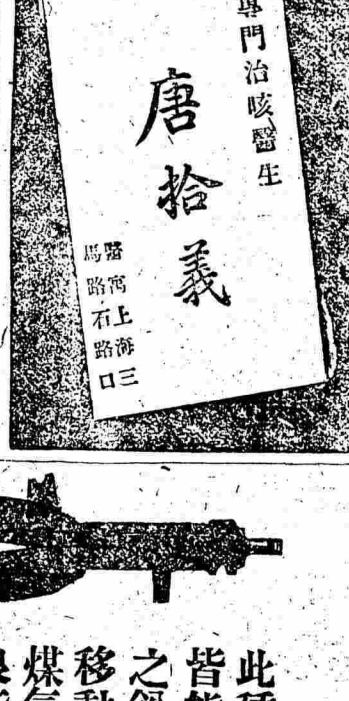 專門治咳醫生
唐拾義
醫寓上海三
馬路石路口
此
皆
之
移動
煤气